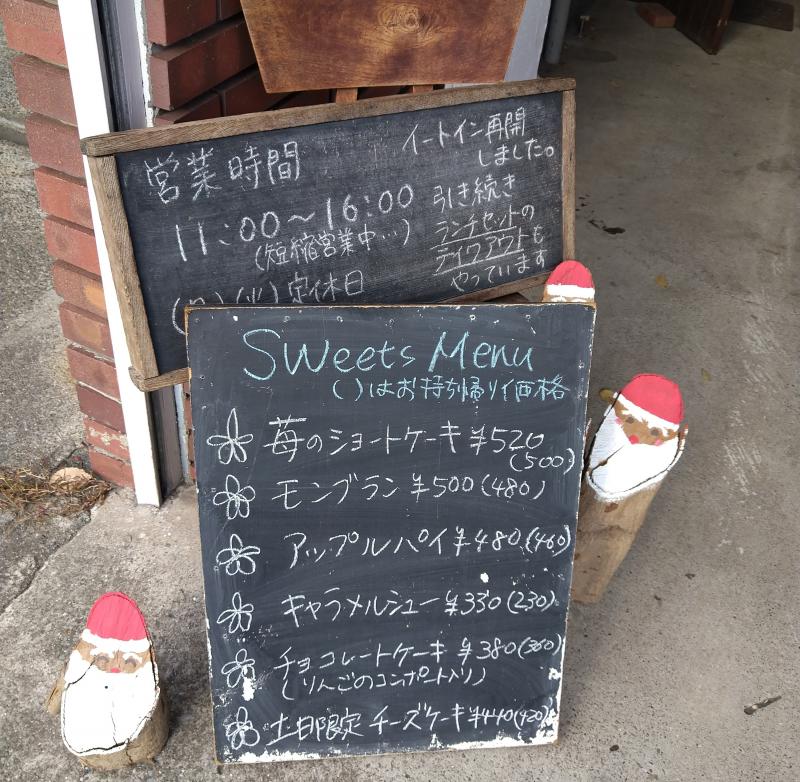 営業時間
11:00～16:00
(短縮営業中…)
(火)定休日
イートイン再開
しました。
引き続き
ランチセットの
テイクアウトも
やっています
Sweets Menu
( )はお持ち帰り価格
苺のショートケーキ ¥520
(500)
モンブラン ¥500(480)
アップルパイ ¥480(460)
キャラメルシュー ¥330(230)
チョコレートケーキ ¥380(360)
(りんごのコンポート入り)
土日限定 チーズケーキ ¥440(420)